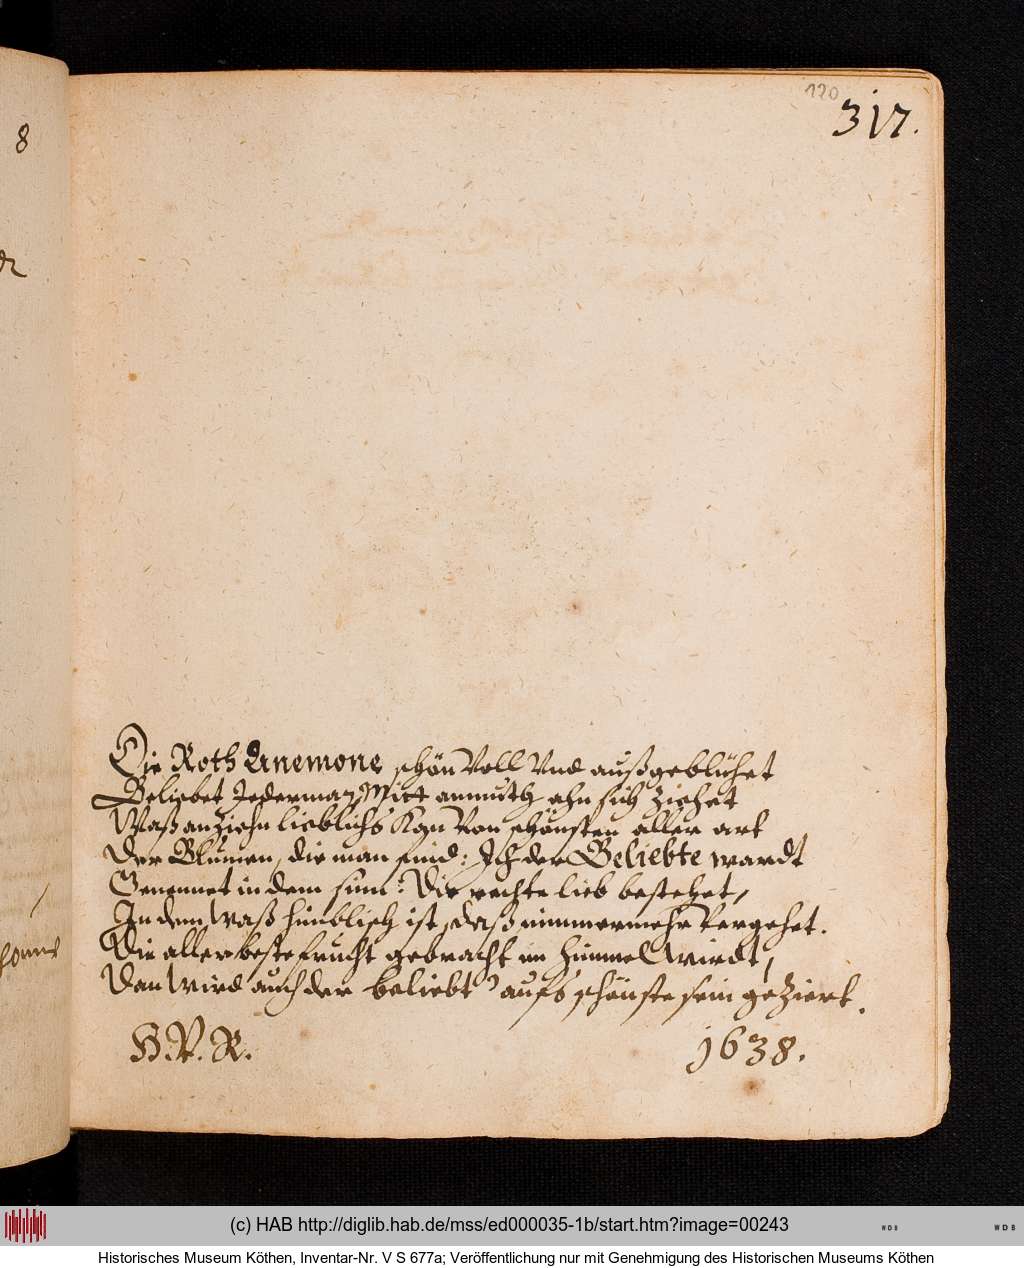 8
120
317.
Die Roth Anemone schön Voll Vnd außgeblühet
Beliebet Jederman, Mitt anmuth ahn sich Ziehet
Waß anZiehn lieblichs Kan Von schönsten aller art
Der Blumen, die man find: Jch der Beliebte wardt
Genennet in dem sinn: Die rechte lieb bestehet,
In dem Waß himblisch ist, daß nimmermehr Vergehet.
Die allerbeste frucht gebracht im himmel wirdt,
Dan Wird auch der beliebt' aufs schönste sein geZiert.
H. V. R.
1638.
(c) HAB http://diglib.hab.de/mss/ed000035-1b/start.htm?image=00243
WDB
WDB
Historisches Museum Köthen, Inventar-Nr. V S 677a; Veröffentlichung nur mit Genehmigung des Historischen Museums Köthen